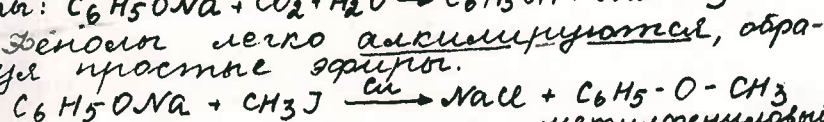 ны: C6H5ONa + CO2 + H2O → C6H5OH
Фенолы легко алкилируются, обра-
уя простые эфиры.
C6H5ONa + CH3J —Cu→ NaCl + C6H5-O-CH3
метилфениловый